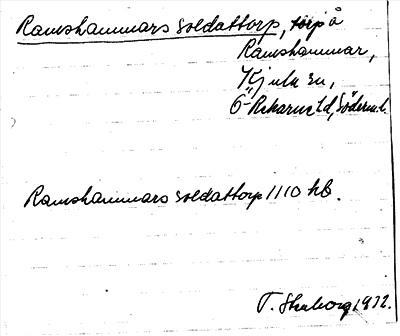 Ramshammars Soldattorp, torp å
Ramshammar,
Kjula sn,
Ö-Rekarne hd, Söderml.
Ramshammars Soldattorp 1110 hb.
T. 1932.